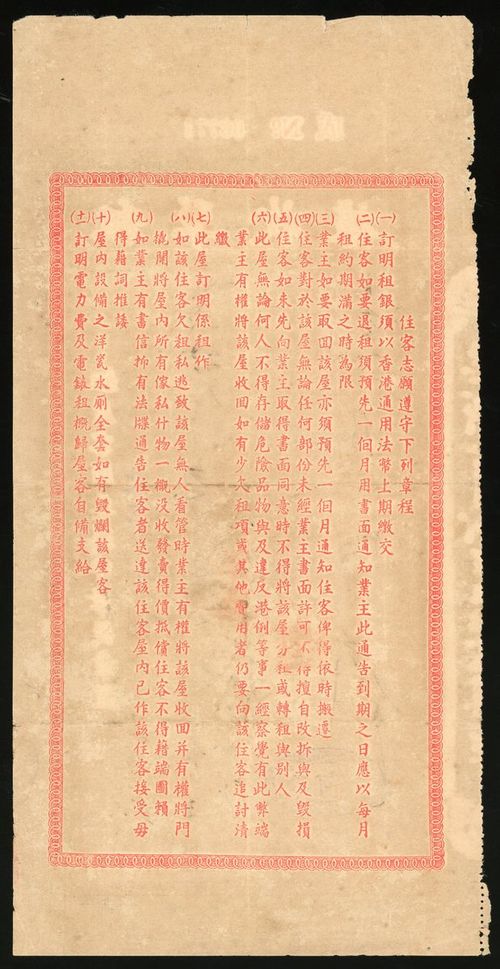 住客志願遵守下列章程
(一)訂明租銀須以香港通用法幣上期繳交
(二)住客如要退租須預先一個月用書面通知業主此通告到期之日應以每月
租約期滿之時為限
(三)業主如要取回該屋亦須預先一個月通知住客俾得依時搬遷
(四)住客對於該屋無論任何部份未經業主書面許可不得擅自改拆與及毀損
(五)住客如未先向業主取得書面同意時不得將該屋分租或轉租與別人
(六)此屋無論何人不得存儲危險品物與及違反港例等事一經察覺有此弊端
業主有權將該屋收回如有少欠租項或其他費用者仍要向該住客追討清
繳
(七)此屋訂明係租作
(八)如該住客欠租私逃致該屋無人看管時業主有權將該屋收回并有權將門
撬開將屋內所有傢私什物一概沒收發賣得價抵償住客不得藉端圖賴
(九)如業主有書信拆有法牒通告住客者送達該住客屋內已作該住客接受毋
得藉詞推諉
(十)屋內設備之洋瓷水廁全套如有毀爛該屋客
(十一)訂明電力費及電錶租概歸屋客自備支給